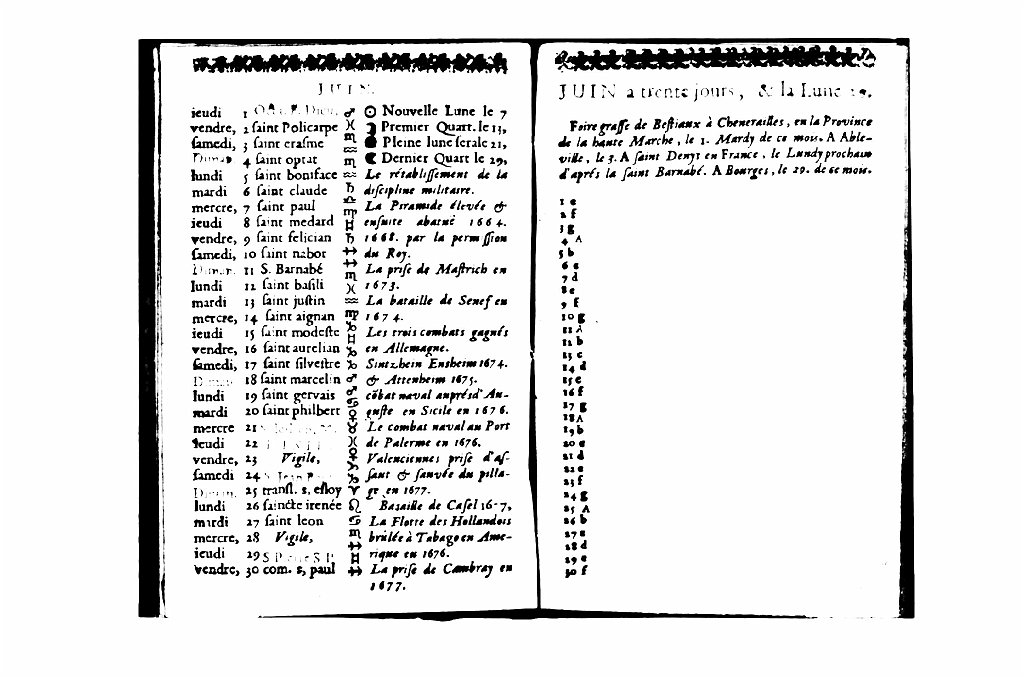 JUIN.
ieudi 1 Oct. F. Dieu. ♂ ☉ Nouvelle Lune le 7
vendre, 2 saint Policarpe ♓ ☽ Premier Quart. le 13,
samedi, 3 saint erasme ♏ ● Pleine lune serale 21,
4 saint optat ♏ ☾ Dernier Quart le 29,
lundi 5 saint boniface ♒ Le rétablissement de la
mardi 6 saint claude ♄ discipline militaire.
mercre, 7 saint paul ♍ La Piramide élevée &
ieudi 8 saint medard ensuite abatuë 1664.
vendre, 9 saint felician ♄ 1668. par la permission
samedi, 10 saint nabor du Roy.
11 S. Barnabé ♏ La prise de Mastrich en
lundi 12 saint basili ♓ 1673.
mardi 13 saint justin ♒ La bataille de Senef en
mercre, 14 saint aignan ♍ 1674.
ieudi 15 saint modeste Les trois combats gagnés
vendre, 16 saint aurelian en Allemagne.
samedi, 17 saint silvestre Sintzhein Ensheim 1674.
18 saint marcelin ♂ & Attenheim 1675.
lundi 19 saint gervais cõbat naval auprés d'Au-
mardi 20 saint philbert ♀ guste en Sicile en 1676.
mercre 21 ♉ Le combat naval au Port
ieudi 22 ♓ de Palerme en 1676.
vendre, 23 Vigile, Valenciennes prise d'as-
samedi 24 S. Jean saut & sauvée du pilla-
25 transl. s, esloy ♈ ge en 1677.
lundi 26 saincte irenée ♌ Bataille de Casel 16-7,
mardi 27 saint leon ♋ La Flotte des Hollandois
mercre, 28 Vigile, ♏ brûlée à Tabago en Ame-
ieudi 29 S P S P. rique en 1676.
vendre, 30 com. s, paul La prise de Cambray en
1677.
JUIN a trente jours, & la Lune 29.
Foire grasse de Bestiaux à Chenerailles, en la Province
de la haute Marche, le 1. Mardy de ce mois. A Able-
ville, le 3. A saint Denys en France, le Lundy prochain
d'aprés la saint Barnabé. A Bourges, le 29. de ce mois.
1 e
2 f
3 g
4 A
5 b
6 c
7 d
8 e
9 f
10 g
11 A
12 b
13 c
14 d
15 e
16 f
17 g
18 A
19 b
20 c
21 d
22 e
23 f
24 g
25 A
26 b
27 c
28 d
29 e
30 f